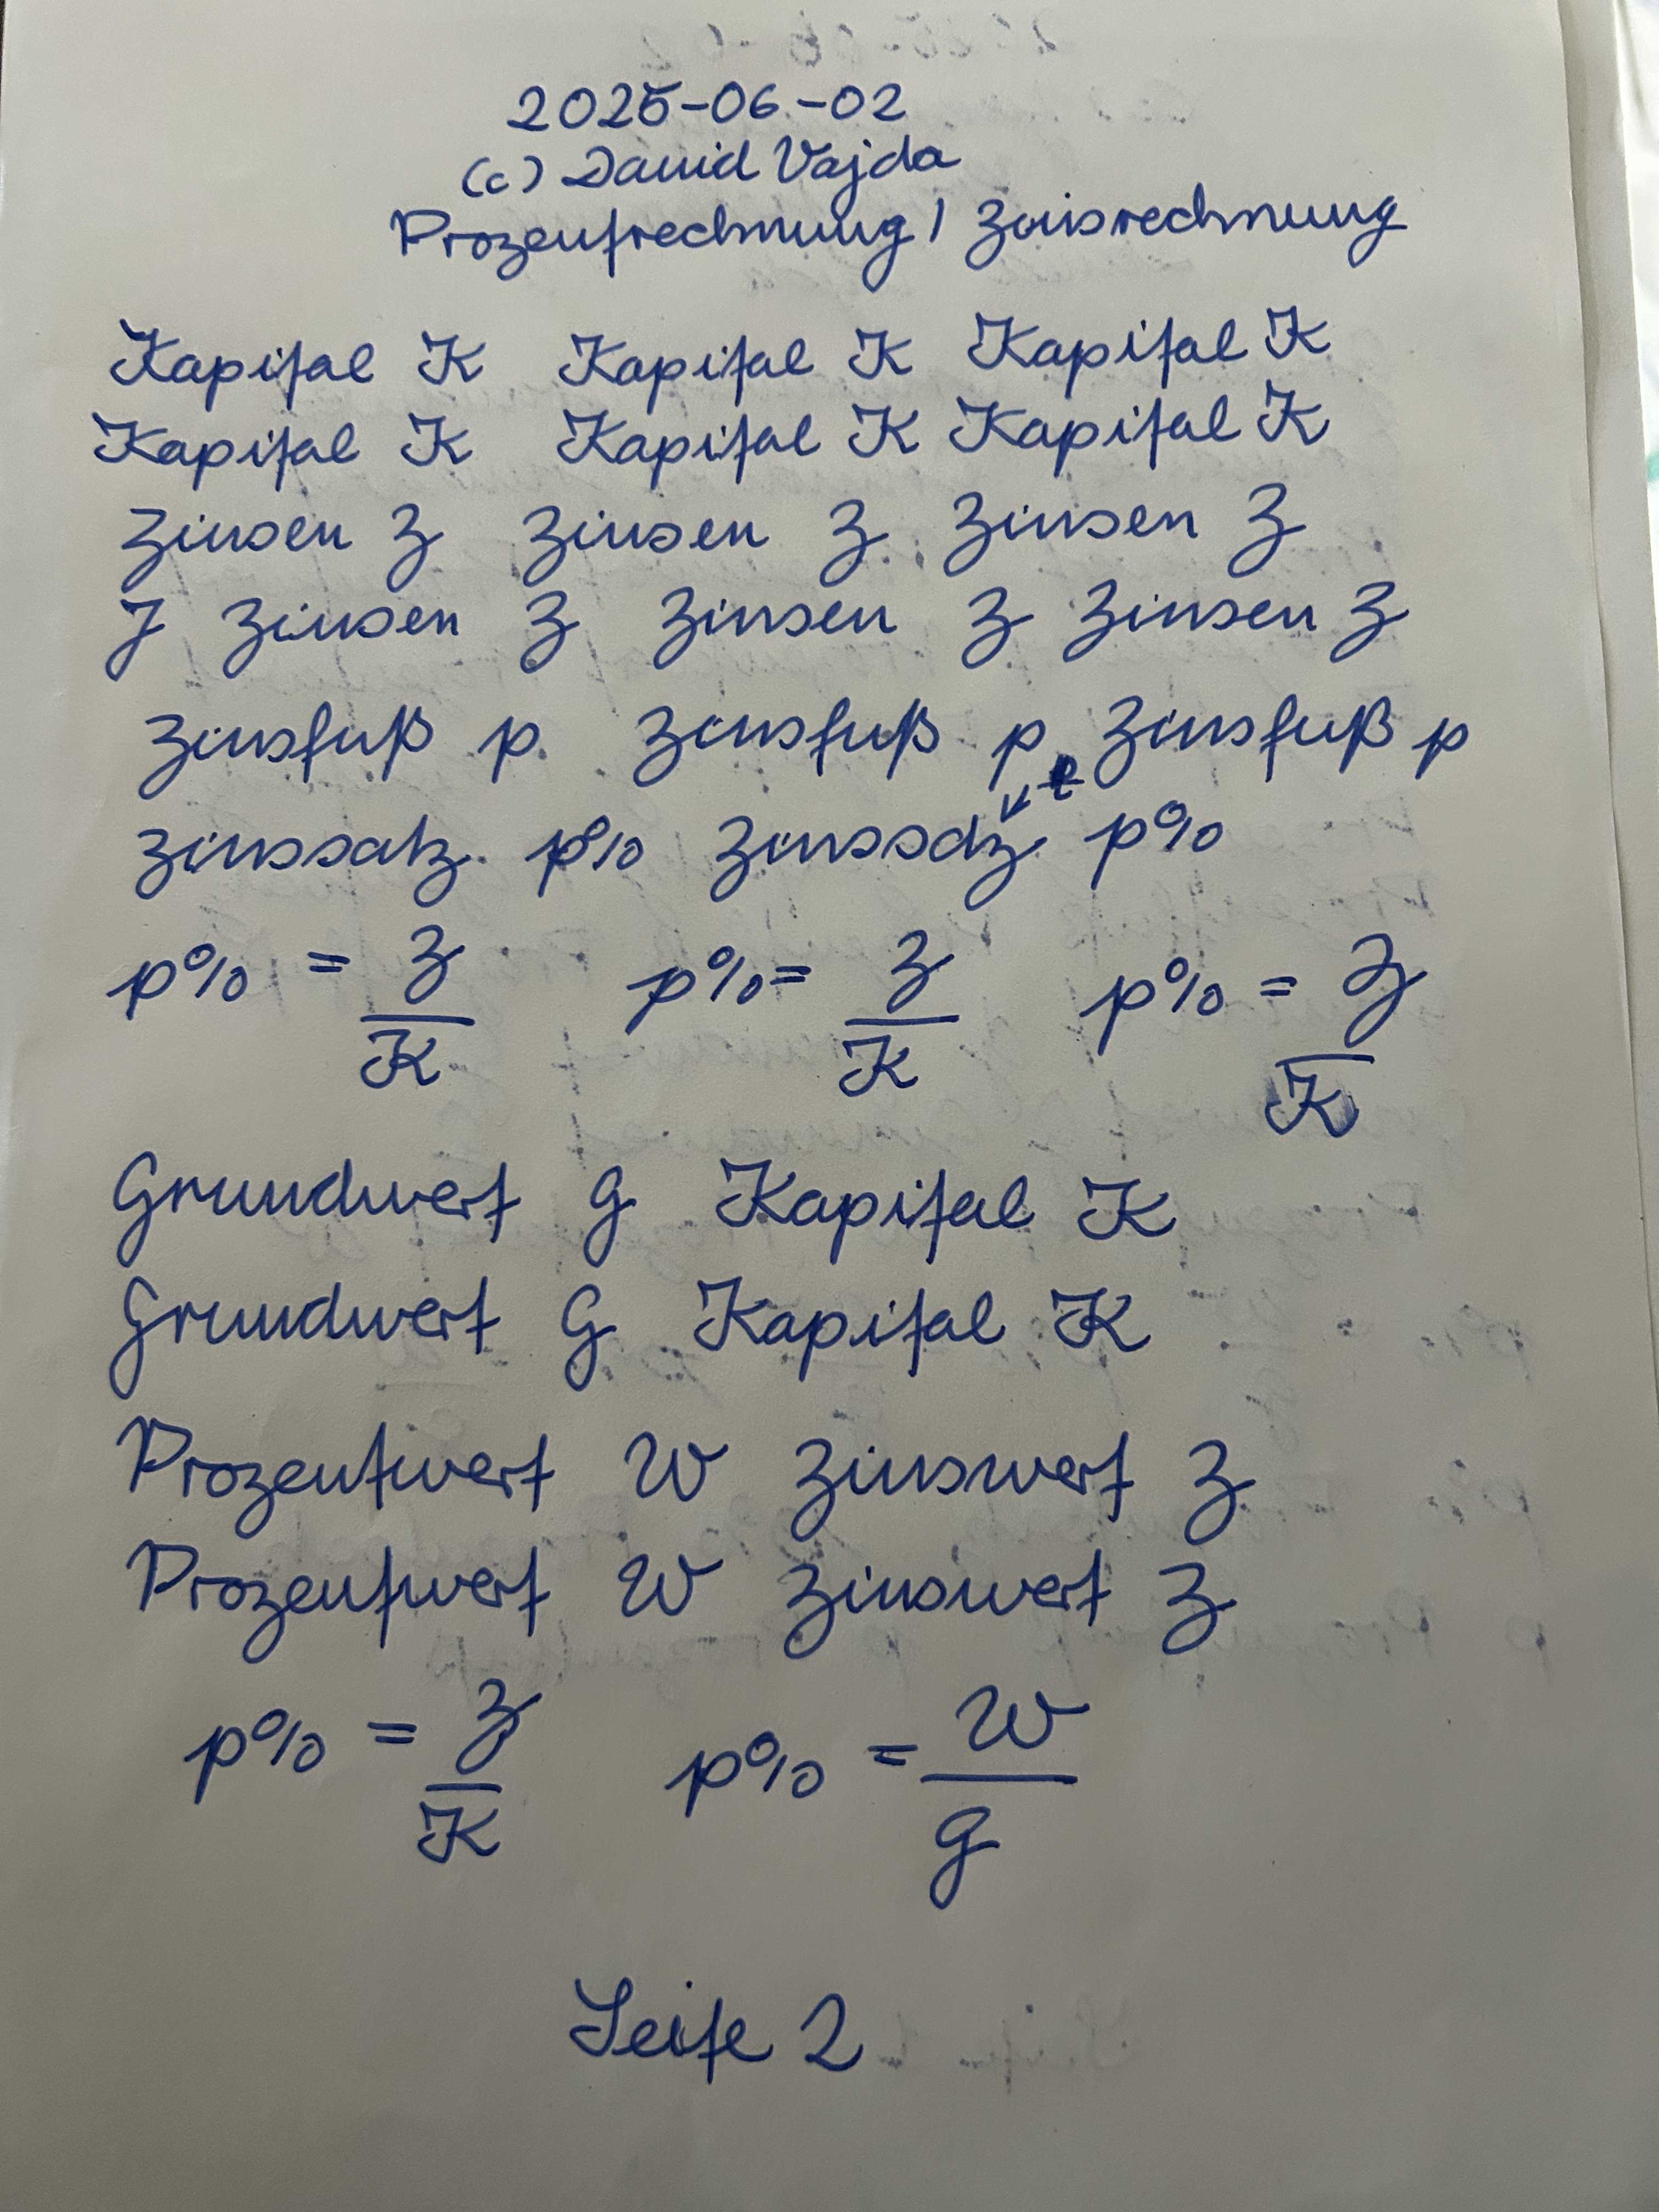 2025-06-02
(c) David Vajda
Prozentrechnung / Zinsrechnung
Kapital K Kapital K Kapital K
Kapital K Kapital K Kapital K
Zinsen Z Zinsen Z Zinsen Z
Z Zinsen Z Zinsen Z Zinsen Z
Zinsfuß p Zinsfuß p Zinsfuß p
t
Zinssatz p% Zinssaz p%
p% = Z/K p% = Z/K p% = Z/K
Grundwert G Kapital K
Grundwert G Kapital K
Prozentwert W Zinswert Z
Prozentwert W Zinswert Z
p% = Z/K p% = W/G
Seite 2